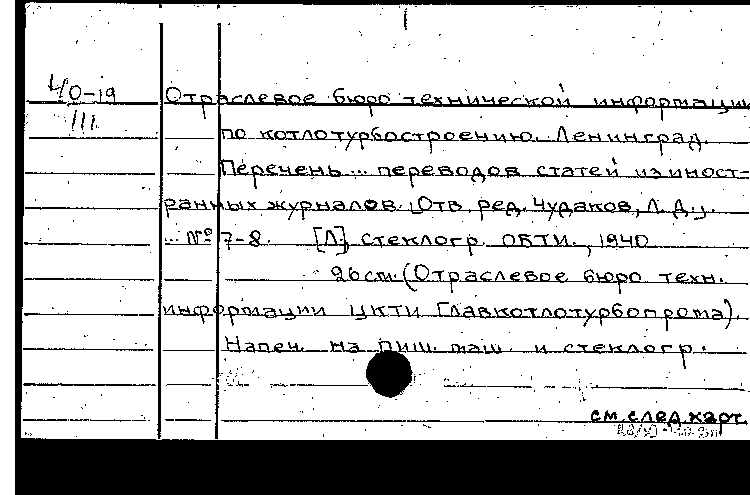 40-19
III
Отраслевое бюро технической информации
по котлотурбостроению. Ленинград.
Перечень... переводов статей из иност-
ранных журналов. [Отв. ред. Чудаков, Л. Д.].
... № 7-8. [Л], стеклогр. ОБТИ., 1940
26 см. (Отраслевое бюро техн.
информации ЦКТИ Главкотлотурбопрома).
Напеч. на пиш. маш. и стеклогр.
см. след. карт.